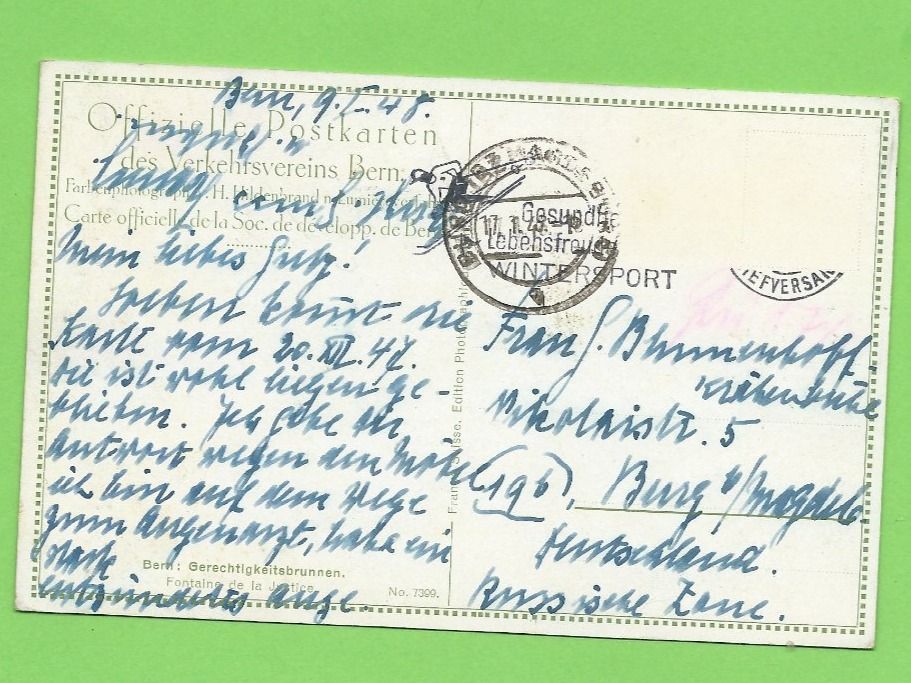 Bern, 9.I.48.
Offizielle Postkarten
des Verkehrsvereins Bern.
Farbenphotographie H. Hildenbrand n. Lumière
Carte officielle de la Soc. de développ. de Bern
Mein liebes
Soeben kommt die
Karte vom 20.XII.47.
die ist wohl liegen ge-
blieben. Ich gebe die
Antwort wegen den Möbel
ich bin auf dem Wege
zum Augenarzt, habe ein
stark
entzündetes Auge.
Bern: Gerechtigkeitsbrunnen.
Fontaine de la Justice
No. 7399.
Franco-Suisse. Edition Photographie
17.1.48
Gesundh
Lebensfreude
WINTERSPORT
IEFVERSAN
Frau G. Blumenhoff.
Nikolaistr. 5
(19b) Burg b/Magdeb.
Deutschland.
Russische Zone.